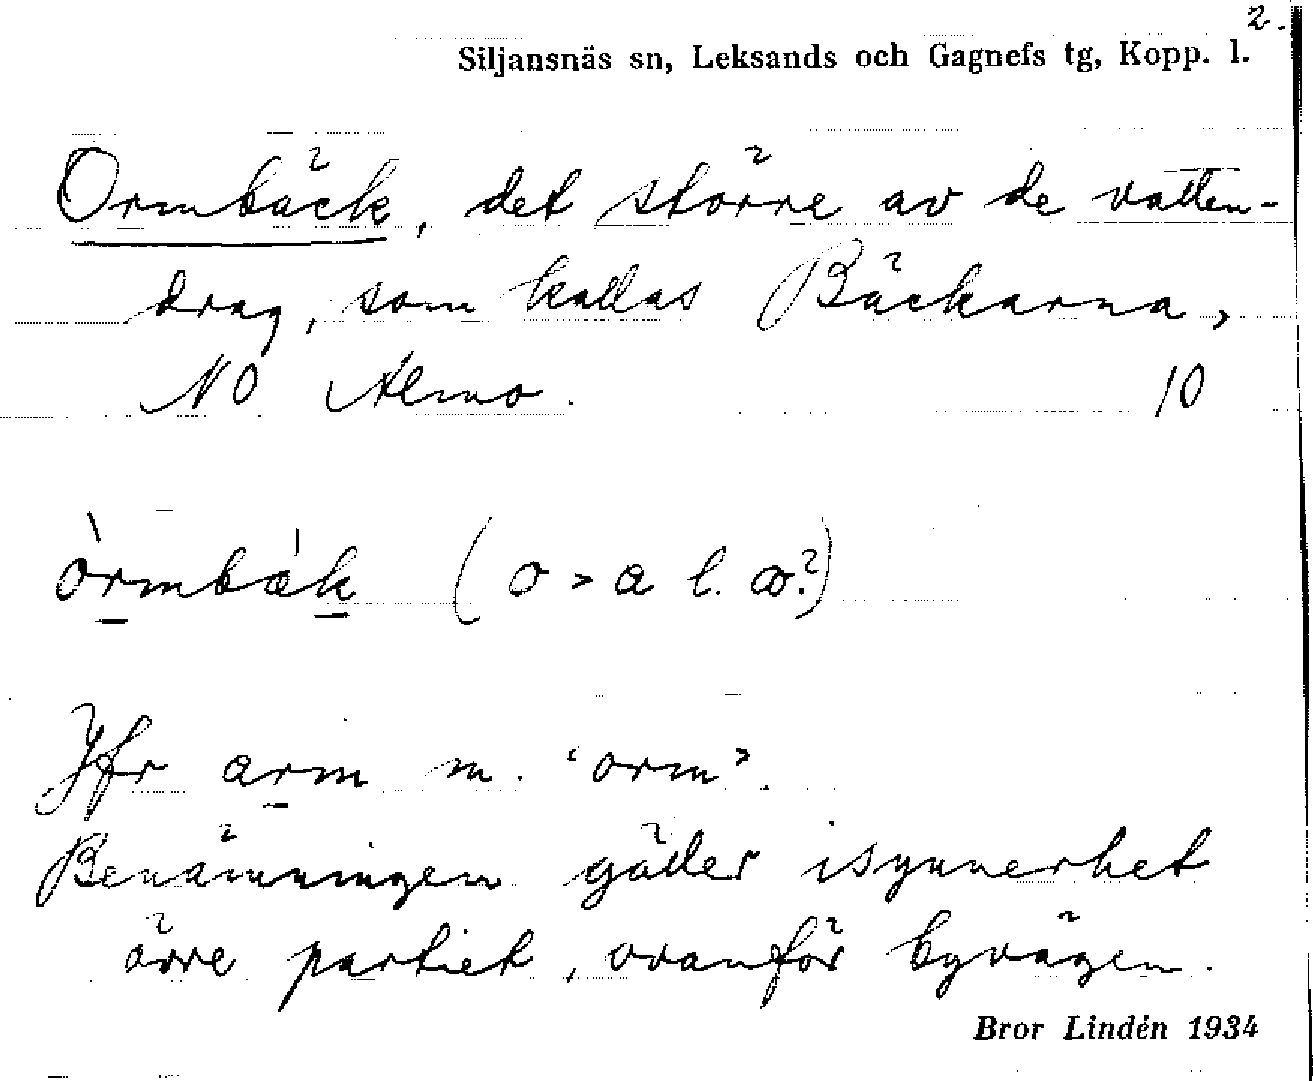 2.
Siljansnäs sn, Leksands och Gagnefs tg, Kopp. l.
Ormbäck, det större av de vatten-
drag, som kallas Bäckarna,
NO Almo. 10
òrmbæ̀k (o > a l. œ?)
Jfr arm m. ‘orm’.
Benämningen gäller isynnerhet
övre partiet, ovanför byvägen.
Bror Lindén 1934